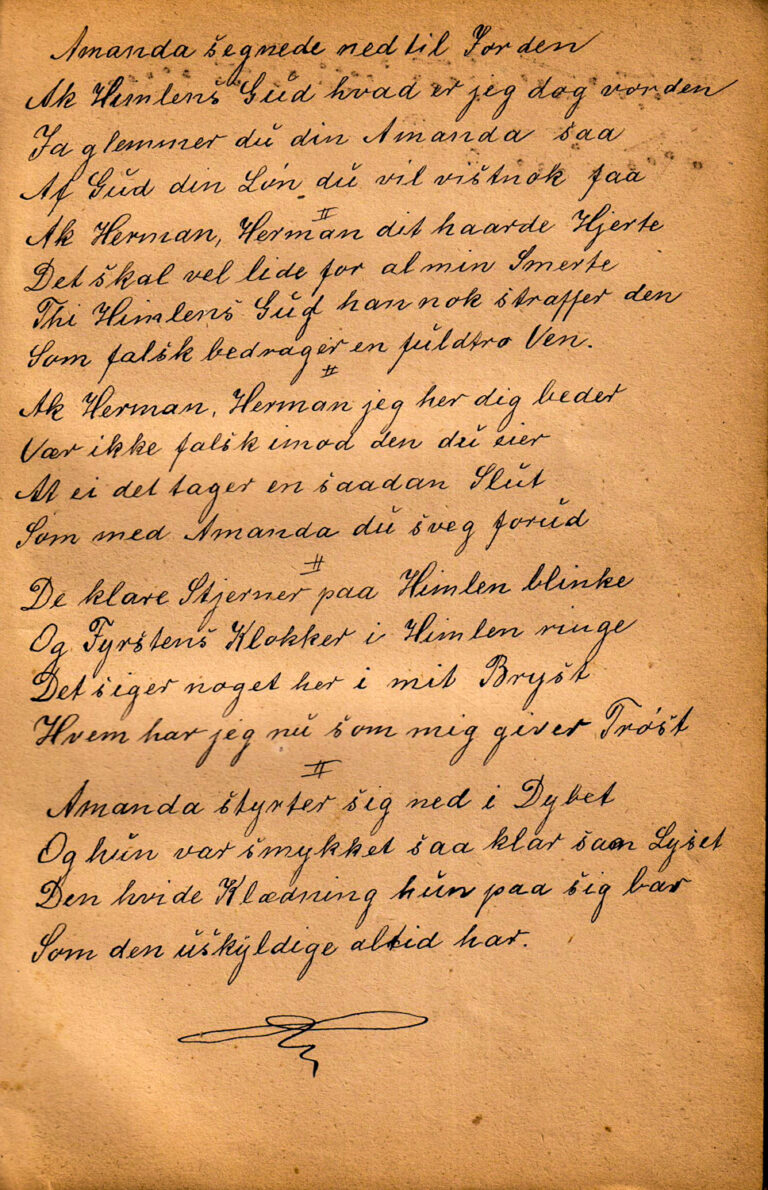 Amanda segnede ned til Jorden
Ak Himlens Gud hvad er jeg dog vorden
Ja glemmer du din Amanda saa
Af Gud din Løn du vil vistnok faa
II
Ak Herman, Herman dit haarde Hjerte
Det skal vel lide for al min Smerte
Thi Himlens Gud han nok straffer den
Som falsk bedrager en fuldtro Ven.
II
Ak Herman, Herman jeg her dig beder
Vær ikke falsk imod den du eier
At ei det tager en saadan Slut
Som med Amanda du sveg forud
II
De klare Stjerner paa Himlen blinke
Og Fyrstens Klokker i Himlen ringe
Det siger noget her i mit Bryst
Hvem har jeg nu som mig giver Trøst
II
Amanda styrter sig ned i Dybet
Og hun var smykket saa klar som Lyset
Den hvide Klædning hun paa sig bar
Som den uskyldige altid har.